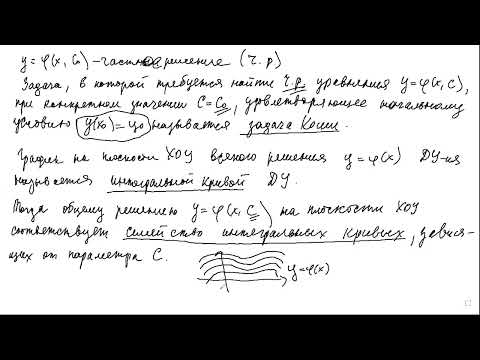 y = φ(x, C₀) – частное решение (ч.р)
Задача, в которой требуется найти ч.р. уравнения y=φ(x,C),
при конкретном значении C=C₀, удовлетворяющее начальному
условию y(x₀)=y₀ называется задача Коши.
График на плоскости XOY всякого решения y=φ(x) ДУ-ия
называется интегральной кривой ДУ.
Тогда общему решению y=φ(x,C) на плоскости XOY
соответствует семейство интегральных кривых, завися-
щих от параметра C.
y=φ(x)